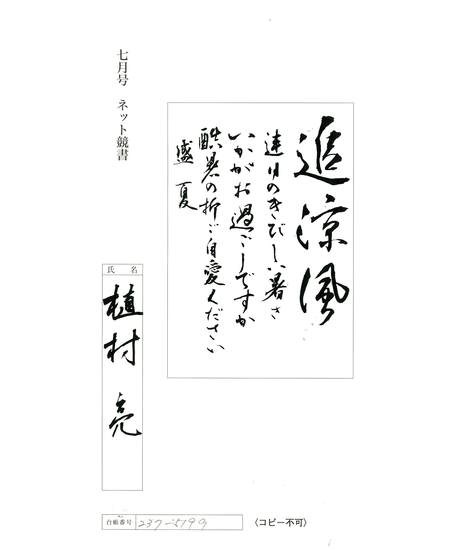 七月号 ネット競書
追涼風
連日のきびしい暑さ
いかがお過ごしですか
酷暑の折ご自愛ください
盛夏
氏名
植村 亮
台帳番号 237-5199
〈コピー不可〉